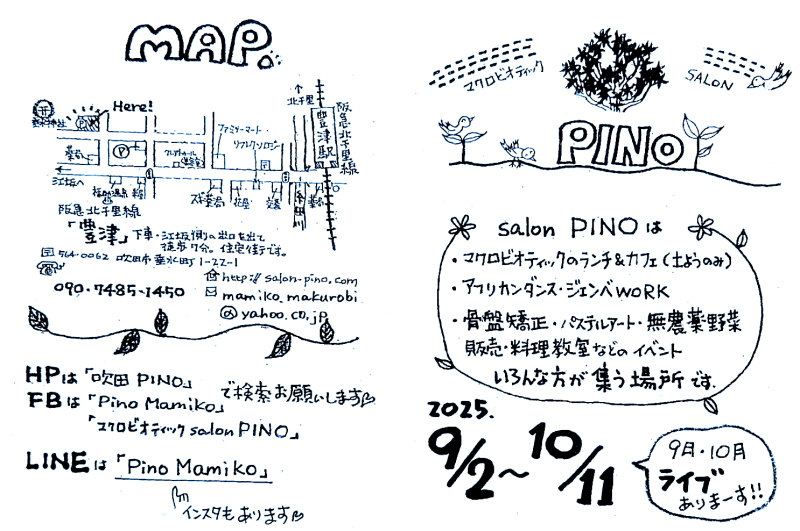 MAP.
Here!
北千里
阪急北千里線
豊津駅
ファミリーマート
リフレクソロジー
P
江坂へ
花屋
交番
薬局
阪急北千里線
「豊津」下車・江坂側の出口を出て
徒歩7分。住宅街です。
〒564-0062 吹田市垂水町1-22-1
http://salon-pino.com
090-7485-1450
mamiko_makurobi
@yahoo.co.jp
HPは「吹田 PINO」
で検索お願いします
FBは「Pino Mamiko」
「マクロビオティック salon PINO」
LINEは「Pino Mamiko」
インスタもあります
マクロビオティック
SALON
PINO
salon PINOは
・マクロビオティックのランチ&カフェ(土ようのみ)
・アフリカンダンス・ジェンベWORK
・骨盤矯正・パステルアート・無農薬野菜
販売・料理教室などのイベント
いろんな方が集う場所です.
2025.
9/2~10/11
9月・10月
ライブ
ありまーす!!